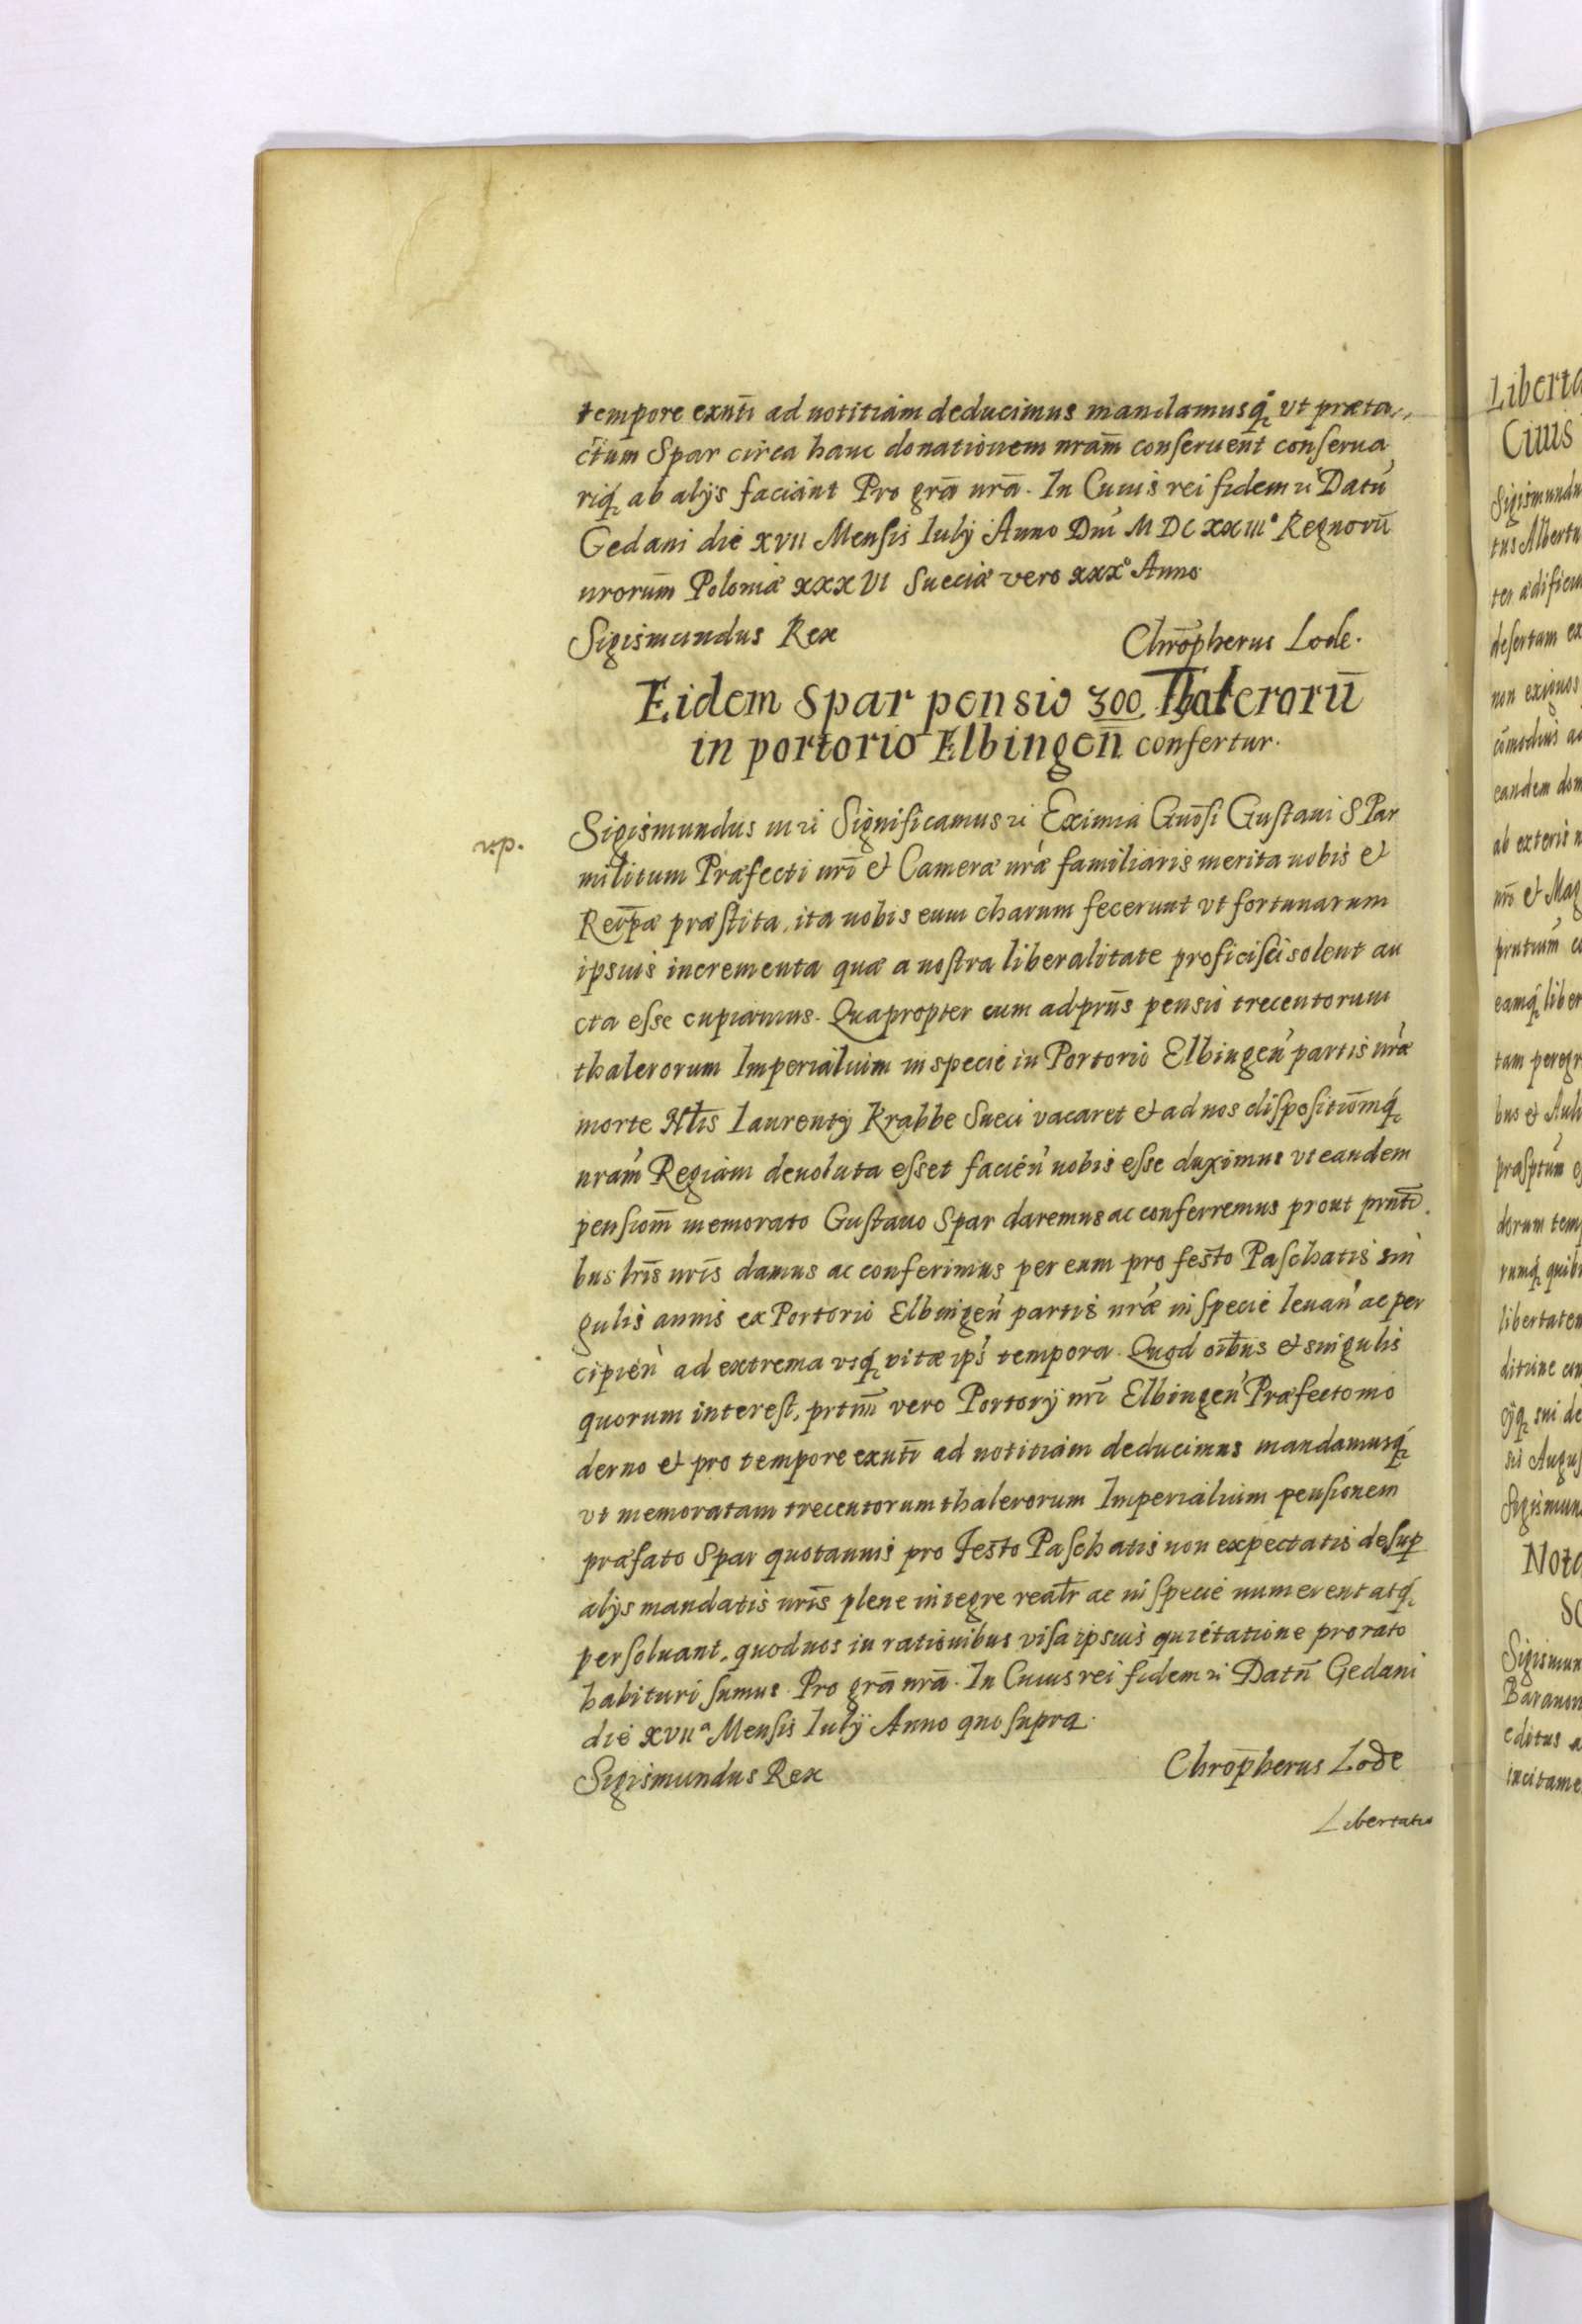 tempore exnti ad notitiam deducimus mandamusq ut præta,,
ctum Spar circa hanc donationem nram conseruent conserua
riq ab alijs faciant Pro grã nrã. In Cuius rei fidem &c Datũ
Gedani die XVII Mensis Iulij Anno Dni MDCXXIIIº Regnorũ
nrorum Poloniæ XXXVI Sueciæ vero XXXº Anno
Sigismundus Rex Chrõpherus Lode.
Eidem Spar pensio 300 Thalerorũ
in portorio Elbingen̄ confertur.
Sigismundus III &c Significamus &c Eximia Gnõsi Gustaui SPar
militum Præfecti nrĩ et Cameræ nræ familiaris merita nobis et
Reipæ præstita, ita nobis eum charum fecerunt vt fortunarum
ipsius incrementa quæ a nostra liberalitate proficisci solent au
cta esse cupiamus. Quapropter cum ad prñs pensio trecentorum
thalerorum Imperialium in specie in Portorio Elbingen̄ partis nræ
morte Nlis Laurentij Krabbe Sueci vacaret et ad nos dispositiõmq
nram Regiam deuoluta esset facien̄ nobis esse duximus vt eandem
pensiom̄ memorato Gustauo Spar daremus ac conferremus prout prntĩ
bus lrĩs nrĩs damus ac conferimus per eum pro festo Paschatis sin
gulis annis ex Portorio Elbingen̄ partis nræ in specie leuan̄ ac per
cipien̄ ad extrema vsq vitæ ips̄ tempora. Quod oĩbus et singulis
quorum interest, prtim̄ vero Portorij nrĩ Elbingen̄ Præfecto mo
derno et pro tempore exnti ad notitiam deducimus mandamusq
vt memoratam trecentorum thalerorum Imperialium pensionem
præfato Spar quotannis pro Festo Paschatis non expectatis desup
alijs mandatis nrĩs plene integre realr ac in specie numerent atq
persoluant, quod nos in rationibus visa ipsius quietatione pro rato
habituri sumus. Pro grã nrã. In Cuius rei fidem &c Datũ Gedani
die XVIIª Mensis Iulij Anno quo supra.
Sigismundus Rex Chrõpherus Lode
Libertatio
Liberta
Ciuis
Sigismundu
tus Albertu
ter ædificiu
desertam ex
non exiguos
cõmodius ac
eandem dom
ab exteris n
nrõ et Mag
eamq liber
tam peregr
bus et Auli
dorum tem
rumq quibu
libertatem
sis Augus
Sigismun
Nota
Sigismun
Baranon
editus a
incitame